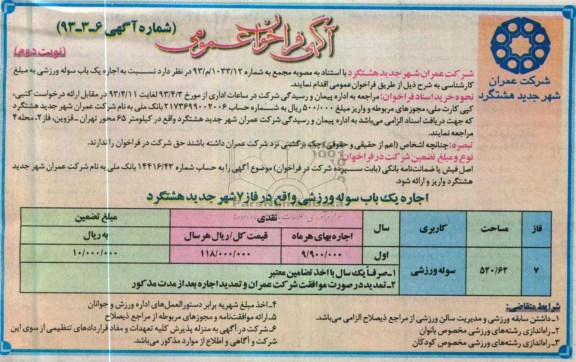 (شماره آگهی ۶-۳-۹۳)
آگهی فراخوان عمومی
(نوبت دوم)
شرکت عمران
شهر جدید هشتگرد
شرکت عمران شهر جدید هشتگرد با استناد به مصوبه مجمع به شماره ۹۳/م/۱۰۳۳/۱۲ در نظر دارد نسبت به اجاره یک باب سوله ورزشی به مبلغ
کارشناسی به شرح ذیل از طریق فراخوان عمومی اقدام نمایند.
نحوه خرید اسناد فراخوان: مراجعه به اداره پیمان و رسیدگی شرکت در ساعات اداری از مورخ ۹۳/۴/۳ لغایت ۹۳/۴/۱۱ در مقابل ارائه درخواست کتبی،
کپی کارت ملی، مجوزهای مربوطه و واریز مبلغ ۵۰۰/۰۰۰ ریال به شماره حساب ۲۱۷۳۶۹۹۰۰۲۰۰۶ بانک ملی به نام شرکت عمران شهر جدید هشتگرد
که جهت دریافت اسناد الزامی می‌باشد به اداره پیمان و رسیدگی شرکت عمران شهر جدید هشتگرد واقع در کیلومتر ۶۵ محور تهران ـ قزوین، فاز ۲، محله ۴
مراجعه نمایند.
تبصره: چنانچه اشخاص (اعم از حقیقی و حقوقی) چک برگشتی نزد شرکت عمران داشته باشند حق شرکت در فراخوان را ندارند.
نوع و مبلغ تضمین شرکت در فراخوان:
اصل فیش یا ضمانت‌نامه بانکی (بابت سپرده شرکت در فراخوان) موضوع آگهی را به حساب شماره ۱۴۴۱۶/۴۳ بانک ملی به نام شرکت عمران شهر جدید
هشتگرد واریز و ارائه شود.
اجاره یک باب سوله ورزشی واقع در فاز ۷ شهر جدید هشتگرد
فاز مساحت کاربری سال نقدی مبلغ تضمین
اجاره بهای هر ماه قیمت کل/ریال هر سال به ریال
۷ ۵۲۰/۶۲ سوله ورزشی اول ۹/۹۰۰/۰۰۰ ۱۱۸/۰۰۰/۰۰۰ ۱۰/۰۰۰/۰۰۰
۱ـ صرفاً یک سال با اخذ تضامین معتبر
۲ـ تمدید در صورت موافقت شرکت عمران و تمدید اجاره بعد از مدت مذکور
شرایط متقاضی:
۱ـ داشتن سابقه ورزشی و مدیریت سالن ورزشی از مراجع ذیصلاح الزامی می‌باشد.
۲ـ راه‌اندازی رشته‌های ورزشی مخصوص بانوان
۳ـ راه‌اندازی رشته‌های ورزشی مخصوص کودکان
۴ـ اخذ مبلغ شهریه برابر دستورالعمل‌های اداره ورزش و جوانان
۵ـ ارائه موافقت‌نامه و مجوزهای مربوطه از مراجع ذیصلاح
۶ـ شرکت در آگهی به منزله پذیرش کلیه تعهدات و مفاد قراردادهای تنظیمی از سوی این
شرکت و آگاهی و اطلاع از موارد مذکور می‌باشد.